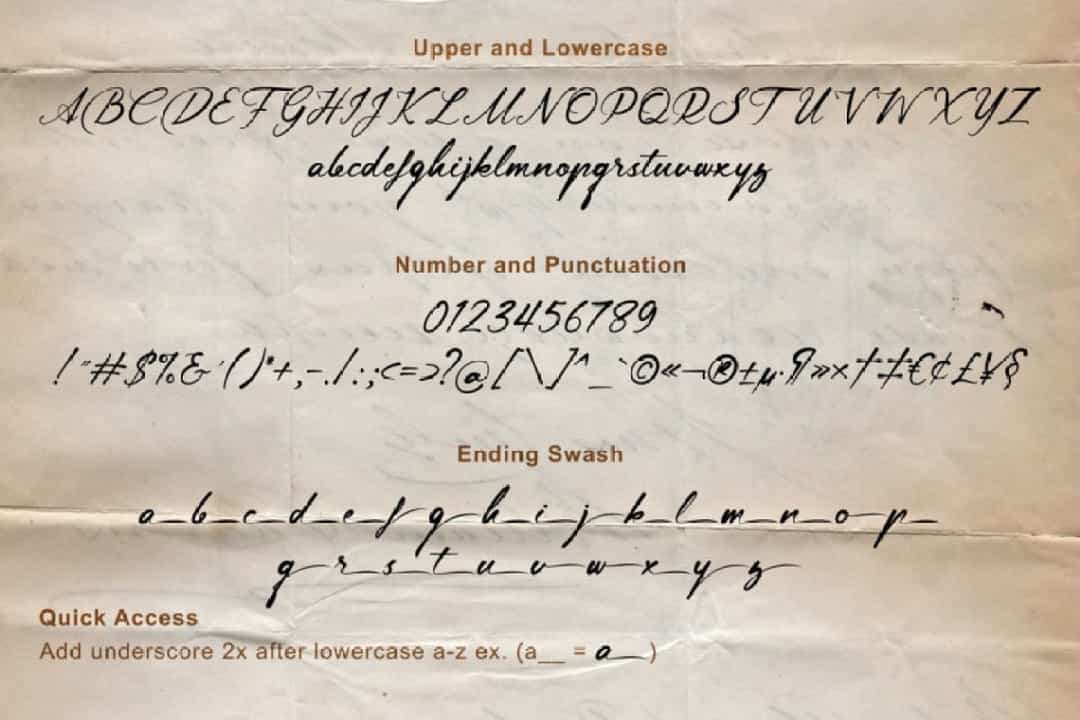 Upper and Lowercase
ABCDEFGHIJKLMNOPQRSTUVWXYZ
abcdefghijklmnopqrstuvwxyz
Number and Punctuation
0123456789
!"#$%&'()*+,-./:;<=>?@[\]^_`©«¬®±µ·¶»×†‡€¢£¥§
Ending Swash
a b c d e f g h i j k l m n o p
q r s t u v w x y z
Quick Access
Add underscore 2x after lowercase a-z ex. (a__ = a_)